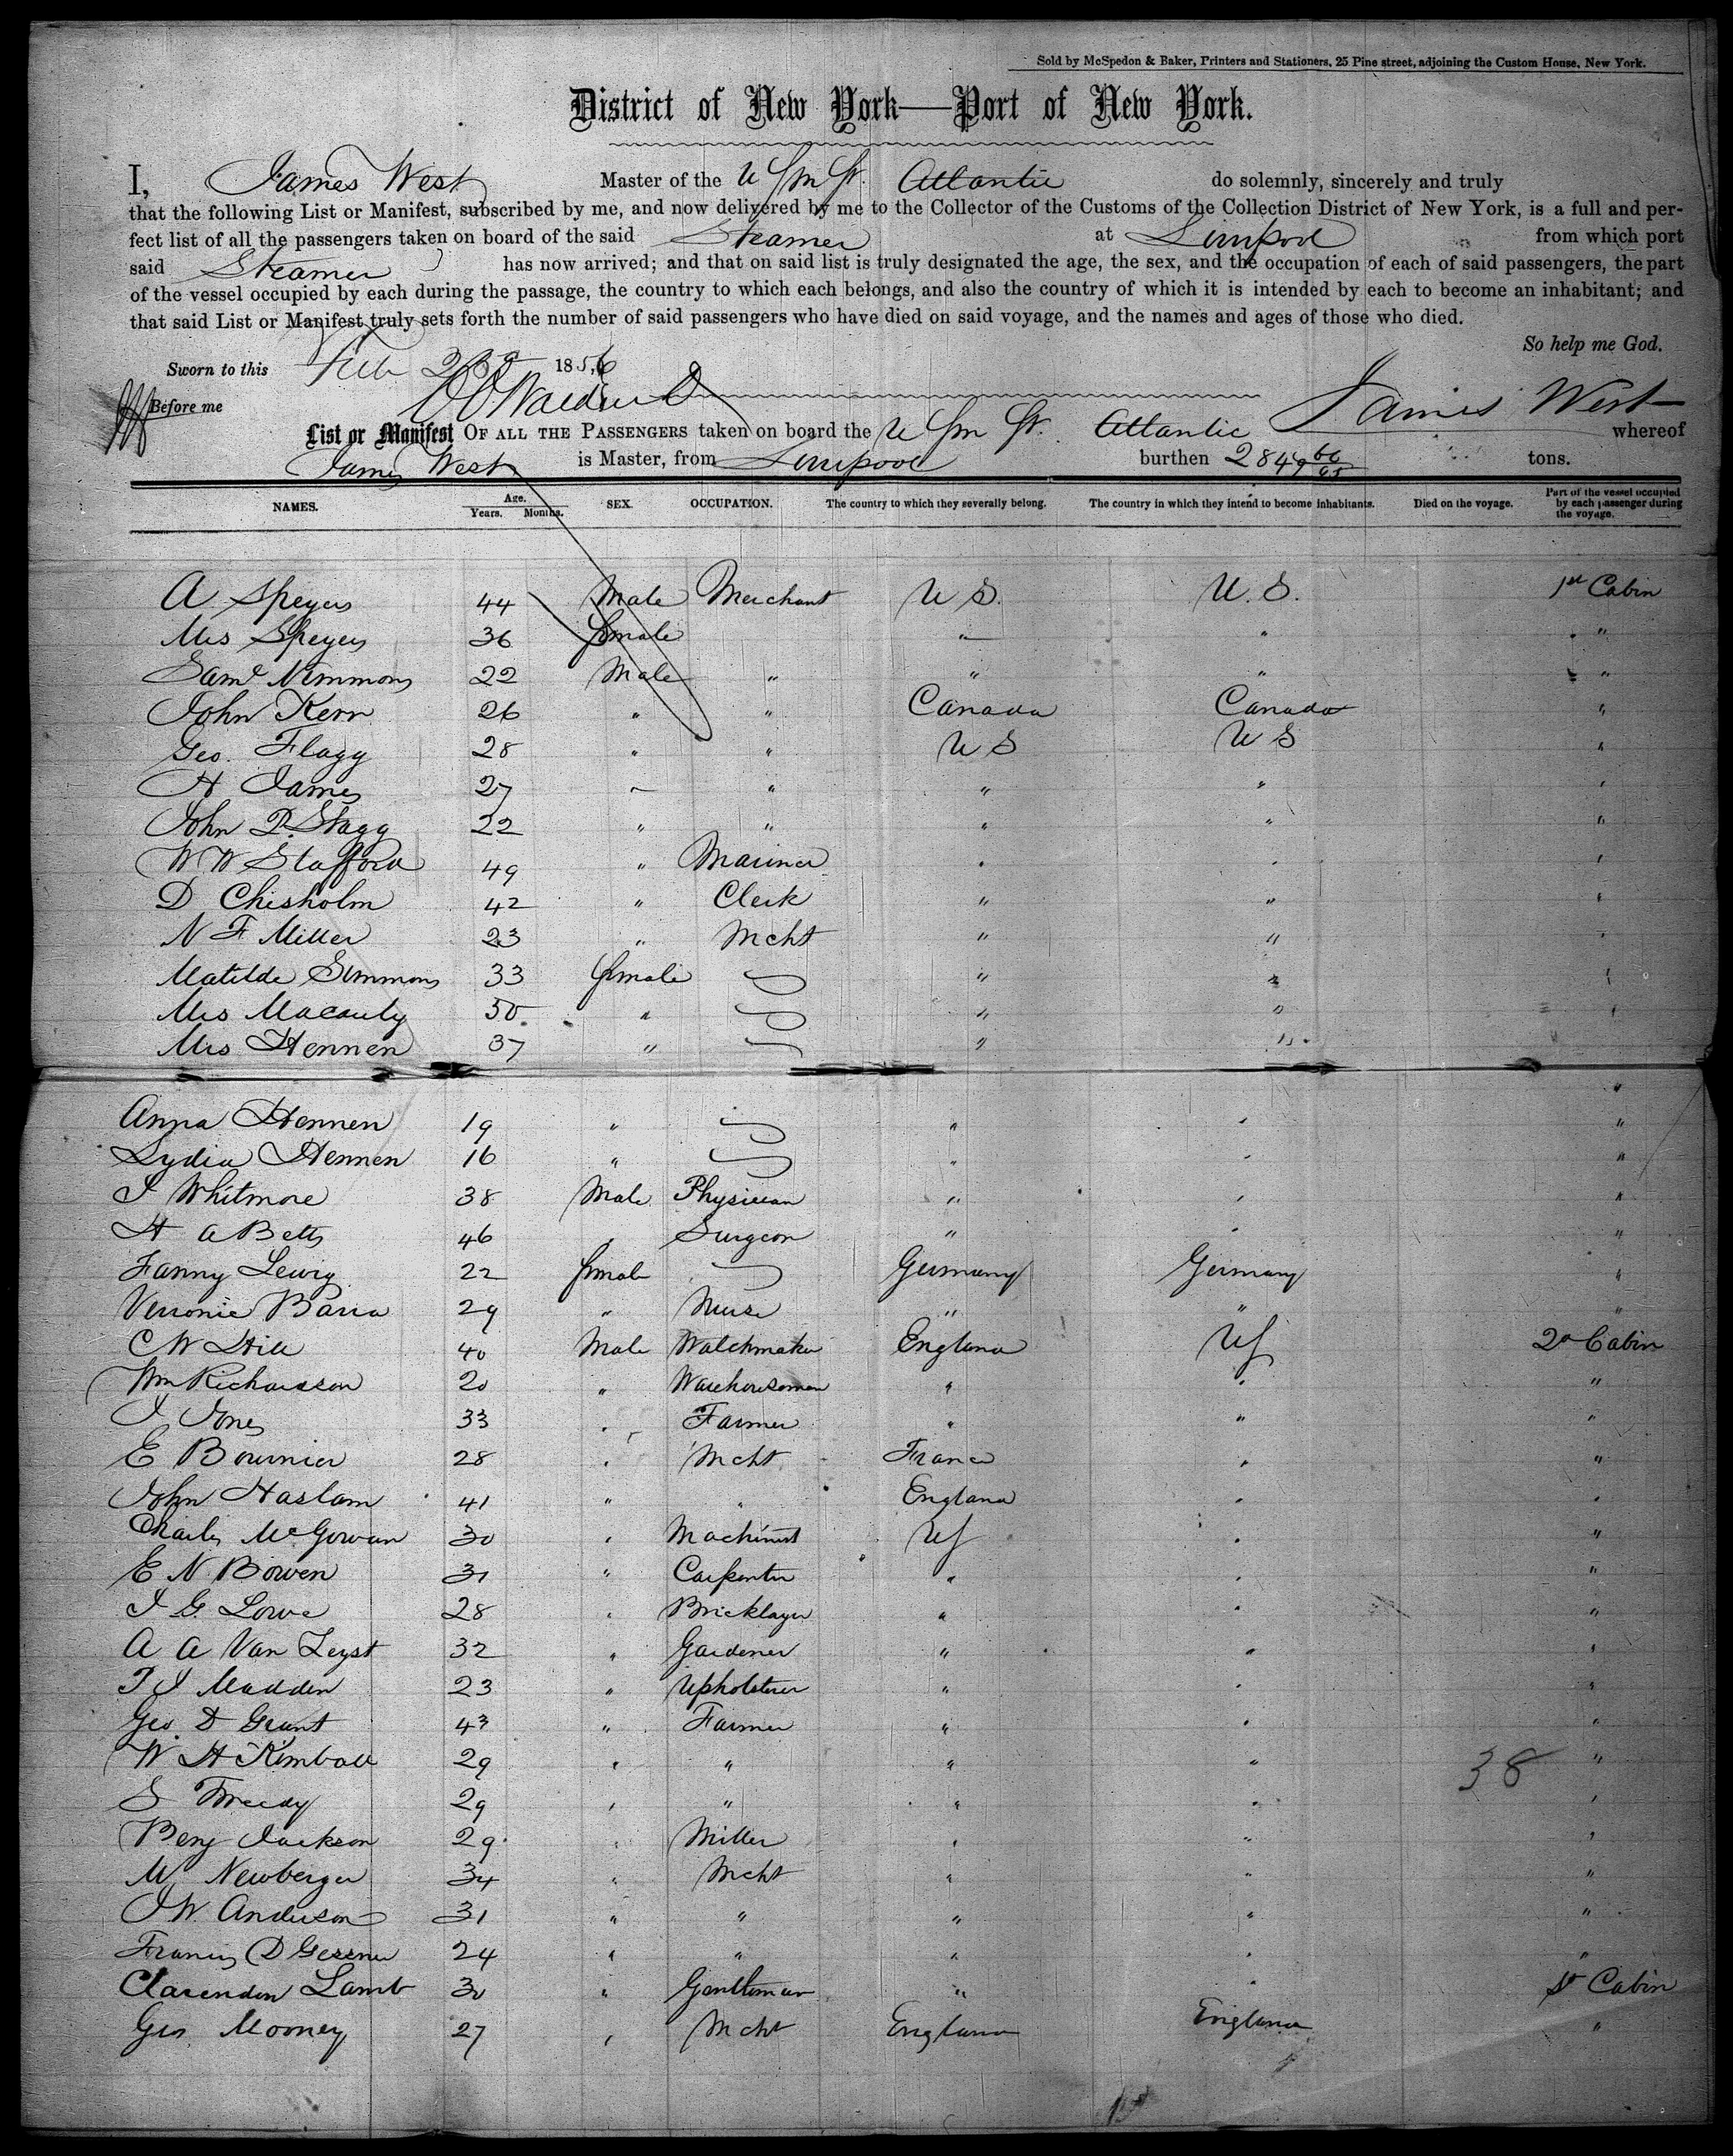 Sold by McSpedon & Baker, Printers and Stationers, 25 Pine street, adjoining the Custom House, New York.
District of New York—Port of New York.
I, James West Master of the U S M St. Atlantic do solemnly, sincerely and truly
that the following List or Manifest, subscribed by me, and now delivered by me to the Collector of the Customs of the Collection District of New York, is a full and per-
fect list of all the passengers taken on board of the said Steamer at Liverpool from which port
said Steamer has now arrived; and that on said list is truly designated the age, the sex, and the occupation of each of said passengers, the part
of the vessel occupied by each during the passage, the country to which each belongs, and also the country of which it is intended by each to become an inhabitant; and
that said List or Manifest truly sets forth the number of said passengers who have died on said voyage, and the names and ages of those who died.
So help me God.
Sworn to this Feb 1856
Before me James West
List or Manifest OF ALL THE PASSENGERS taken on board the U S M St. Atlantic whereof
James West is Master, from Liverpool burthen 2849 tons.
NAMES. Age. Years. Months. SEX. OCCUPATION. The country to which they severally belong. The country in which they intend to become inhabitants. Died on the voyage. Part of the vessel occupied by each passenger during the voyage.
A Speyers 44 Male Merchant U S. U. S. 1st Cabin
Mrs Speyers 36 female " " "
Saml Nimmons 22 Male " " " "
John Kerr 26 " " Canada Canada "
Geo. Flagg 28 " " U S U S "
H James 27 " " " " "
John P. Stagg 22 " " " " "
W W Stafford 49 " Mariner " " "
D Chisholm 42 " Clerk " " "
N F Miller 23 " Mcht " " "
Matilde Simmons 33 female " " "
Mrs Macauly 50 " " " "
Mrs Hennen 37 " " " "
Anna Hennen 19 " " " "
Lydia Hennen 16 " " " "
J Whitmore 38 Male Physician " " "
H A Betts 46 " Surgeon " " "
Fanny Lewig 22 female Germany Germany "
Veronie Barra 29 " Nurse " " "
C W Hill 40 Male Watchmaker England US 2d Cabin
Wm Richardson 20 " Warehouseman " " "
J Jones 33 " Farmer " " "
E Bournier 28 " Mcht France " "
John Haslam 41 " " England " "
Charles McGowan 30 " Machinist US " "
E N Bowen 31 " Carpenter " " "
J G. Lowe 28 " Bricklayer " " "
A A Van Zeyst 32 " Gardener " " "
T J Madden 23 " Upholsterer " " "
Geo. D Grant 43 " Farmer " " "
W H Kimball 29 " " " " "
38
S Tweedy 29 " " " " "
Benj Jackson 29 " Miller " " "
M Newberger 34 " Mcht " " "
J W. Anderson 31 " " " " "
Francis D Gessner 24 " " " " "
Clarendon Lamb 30 " Gentleman " " Cabin
Geo Mooney 27 " Mcht England England "